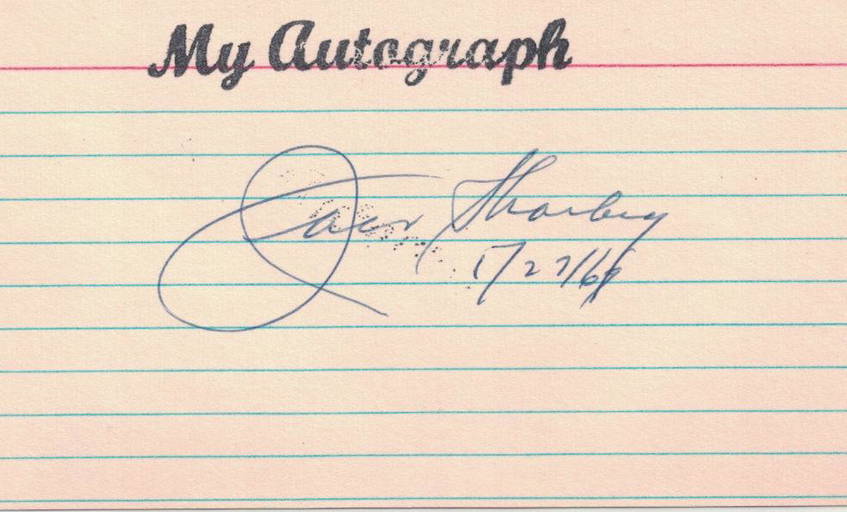 My Autograph
Jack Sharkey
1/27/69